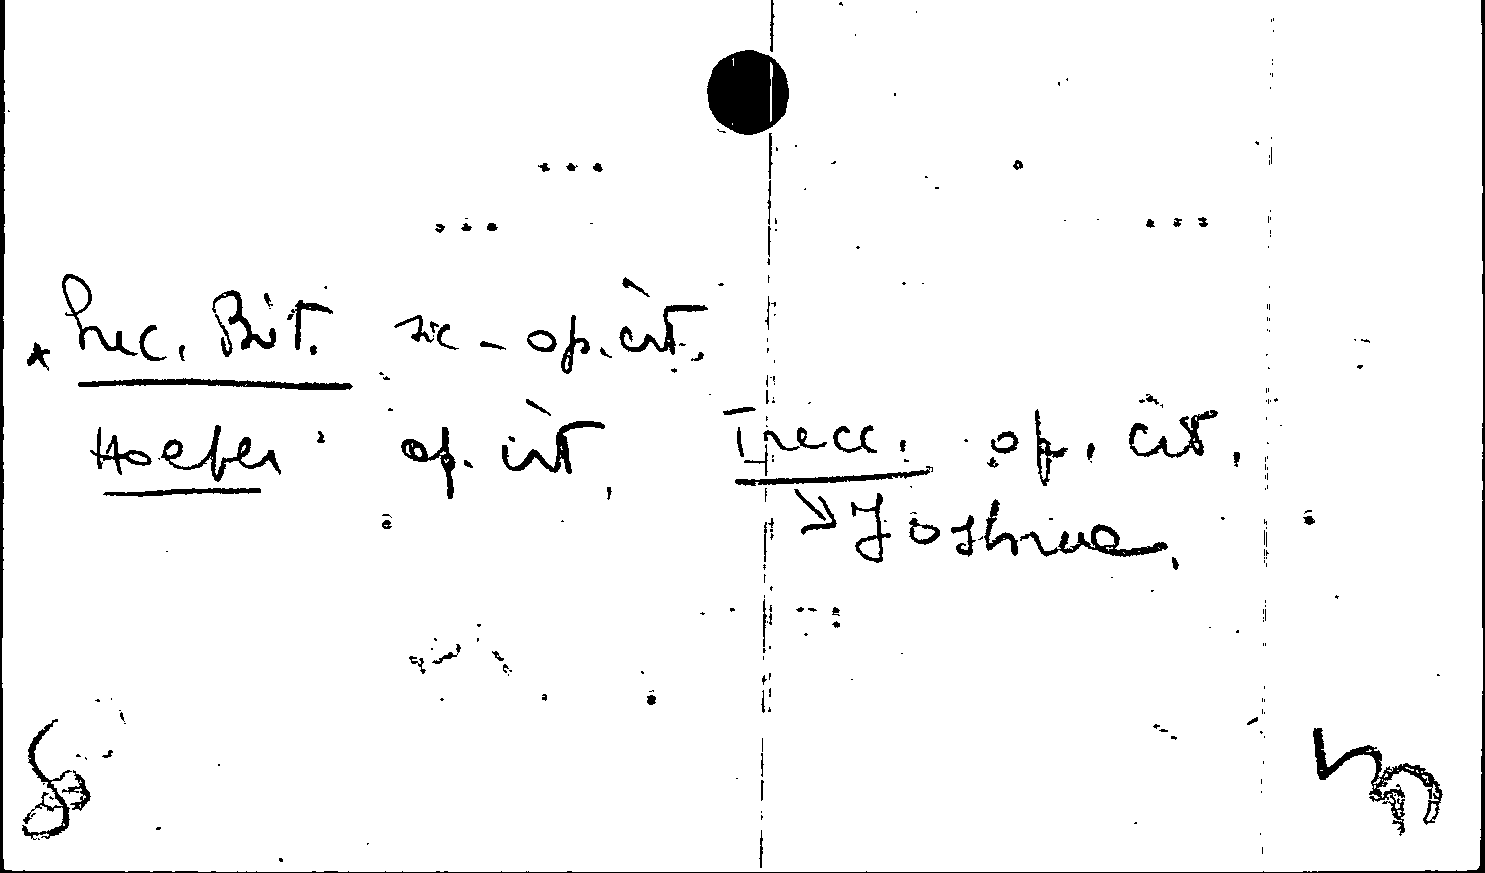 * Enc. Brit. XX - op. cit.
Hoefer: op. cit. Trecc. op. cit.
Joshua.